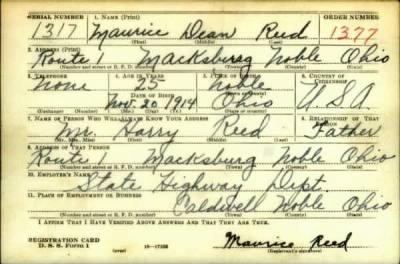 SERIAL NUMBER 1. NAME (Print) ORDER NUMBER
1317 Maurice Dean Reed 1377
(First) (Middle) (Last)
2. ADDRESS (Print)
Route 1 Macksburg Noble Ohio
(Number and street or R. F. D. number) (Town) (County) (State)
3. TELEPHONE 4. AGE IN YEARS 5. PLACE OF BIRTH 6. COUNTRY OF CITIZENSHIP
none 25 Noble
DATE OF BIRTH (Town or county)
Nov. 20 1914 Ohio U.S.A
(Exchange) (Number) (Mo.) (Day) (Yr.) (State or country)
7. NAME OF PERSON WHO WILL ALWAYS KNOW YOUR ADDRESS 8. RELATIONSHIP OF THAT PERSON
Mr. Harry Reed Father
(Mr., Mrs., Miss) (First) (Middle) (Last)
9. ADDRESS OF THAT PERSON
Route 1 Macksburg Noble Ohio
(Number and street or R. F. D. number) (Town) (County) (State)
10. EMPLOYER'S NAME
State Highway Dept.
11. PLACE OF EMPLOYMENT OR BUSINESS
Caldwell Noble Ohio
(Number and street or R. F. D. number) (Town) (County) (State)
I AFFIRM THAT I HAVE VERIFIED ABOVE ANSWERS AND THAT THEY ARE TRUE.
REGISTRATION CARD
D. S. S. Form 1 (over) 16—17105 Maurice Reed
(Registrant's signature)